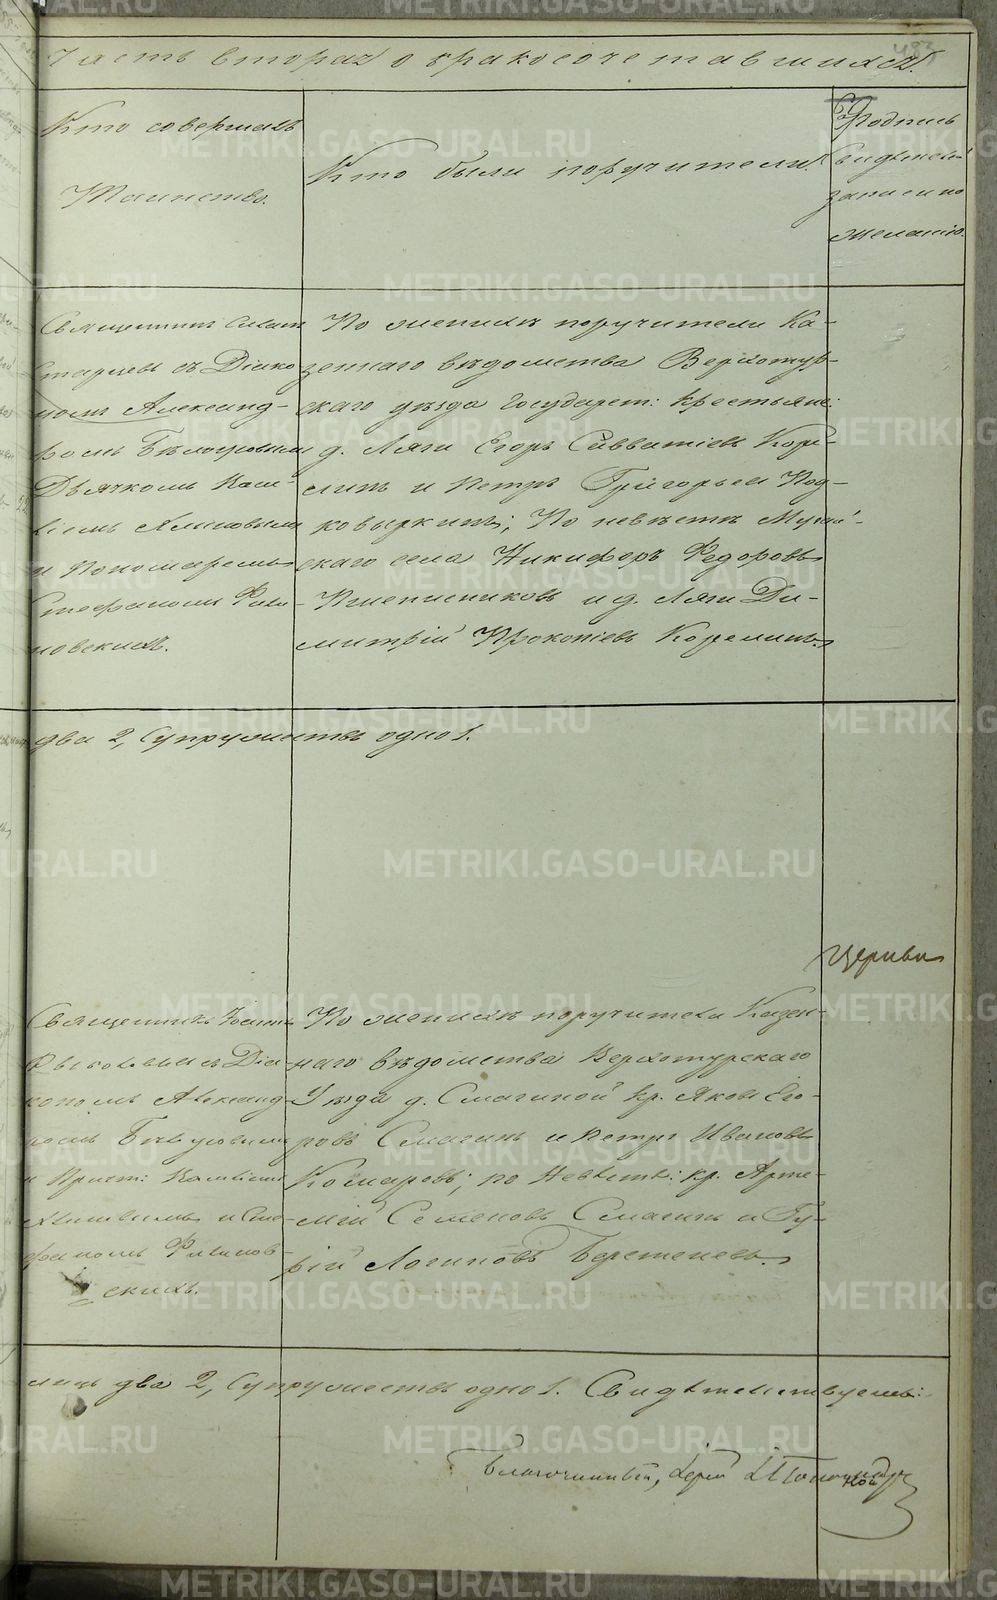 Часть вторая о бракосочетавшихся.
Кто совершалъ
Таинство.
Кто были поручители.
Подпись
свидѣтелей
записи по
желанію.
Священникъ
Старцевъ съ Діако
номъ Александ-
ромъ Бѣлоусовымъ
Дьячкомъ
и Пономаремъ
Стефаномъ
новскимъ.
По женихѣ поручители Ка-
зеннаго вѣдомства Верхотур-
скаго уѣзда Государст: крестьяне:
д. Ляги Егоръ Савватіевъ Коре-
линъ и Петръ Григорьевъ Под-
ковыркинъ; По невѣстѣ
скаго села Никифоръ Федоровъ
Пшеничниковъ и д. Ляги Ди-
митрій Прокопіевъ Корелинъ
два 2, Супружествъ одно 1.
Церкви
Священникъ
съ Діа-
кономъ Александ-
ромъ Бѣлоусовымъ
и Причт:
и Сте-
фаномъ
скимъ.
По женихѣ поручители Казен-
наго вѣдомства Верхотурскаго
Уѣзда д. Смагиной кр. Яковъ Его-
ровъ Смагинъ и Петръ Ивановъ
Комаровъ; по Невѣстѣ: кр. Арте-
мій Семеновъ Смагинъ и Гу-
рій Логиновъ Берстеневъ
лицъ два 2, Супружествъ одно 1. Свидѣтельствуемъ:
Благочинный, Іерей
METRIKI.GASO-URAL.RU